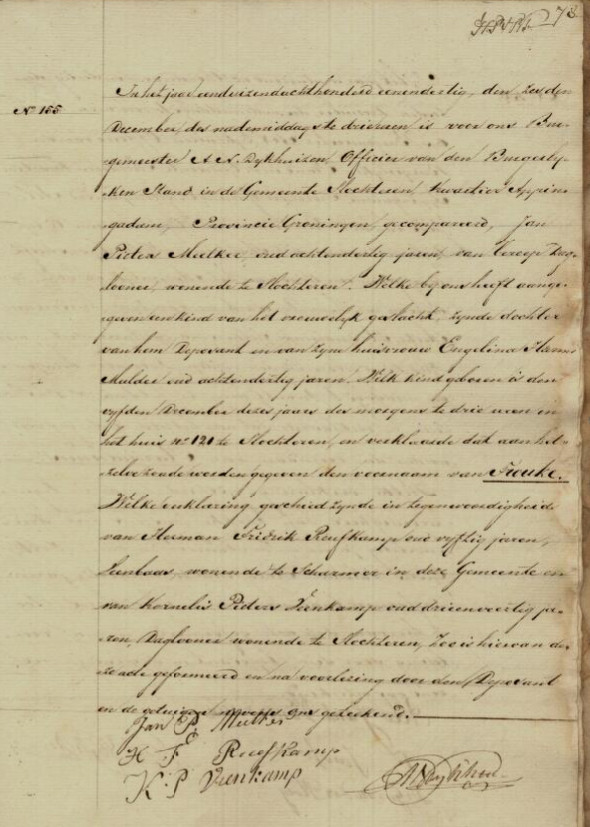 78
N° 155
In het jaar eenduizendachthonderd eenendertig, den zesden
December des nademiddags te drie uren is voor ons Bur-
gemeester A. N. Dijkhuizen Officier van den Burgerly-
ken Stand in de Gemeente Slochteren Kwartier Appin-
gadam, Provincie Groningen, gecompareerd, Jan
Pieters Mulder, oud achtendertig jaren, van beroep Dag-
looner, wonende te Slochteren. Welke bij ons heeft aange-
geven een kind van het vrouwelyk geslacht, zynde dochter
van hem Deposant en van zyne huisvrouw Engelina Harms
Mulder oud achtendertig jaren. Welk kind geboren is den
vyfden December dezes jaars des morgens te drie uren in
het huis n° 121 te Slochteren, en verklaarde dat aan het-
zelve zoude worden gegeven den voornaam van Frouke.
Welke verklaring geschied zynde in tegenwoordigheid
van Harman Fridrik Roefkamp oud vyftig jaren,
wonende te Scharmer in deze Gemeente en
van Kornelis Pieters Veenkamp oud drieenveertig ja-
ren, Daglooner wonende te Slochteren, Zoo is hiervan de-
ze acte geformeerd en na voorlezing door den Deposant
en de getuigen nevens ons geteekend.
Jan P Mulder
H F Roefkamp
K. P Veenkamp